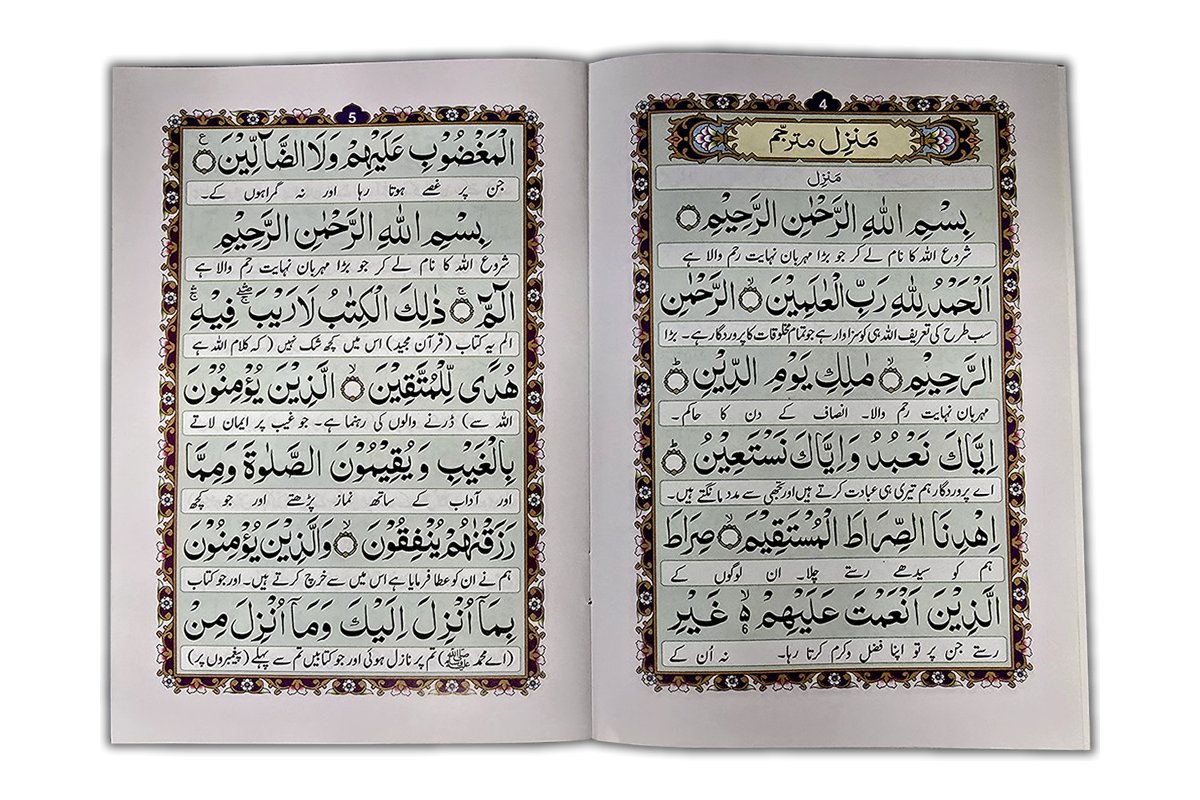 4
مَنزِل مترجّم
مَنزِل
بِسْمِ اللّٰهِ الرَّحْمٰنِ الرَّحِيْمِ
شروع اللہ کا نام لے کر جو بڑا مہربان نہایت رحم والا ہے
اَلْحَمْدُ لِلّٰهِ رَبِّ الْعٰلَمِيْنَ ۙ الرَّحْمٰنِ
سب طرح کی تعریف اللہ ہی کو سزاوار ہے جو تمام مخلوقات کا پروردگار ہے۔ بڑا
الرَّحِيْمِ ۙ مٰلِكِ يَوْمِ الدِّيْنِ ؕ
مہربان نہایت رحم والا۔ انصاف کے دن کا حاکم۔
اِيَّاكَ نَعْبُدُ وَاِيَّاكَ نَسْتَعِيْنُ ؕ
اے پروردگار ہم تیری ہی عبادت کرتے ہیں اور تجھی سے مدد مانگتے ہیں۔
اِهْدِنَا الصِّرَاطَ الْمُسْتَقِيْمَ ۙ صِرَاطَ
ہم کو سیدھے رستے چلا۔ ان لوگوں کے
الَّذِيْنَ اَنْعَمْتَ عَلَيْهِمْ ۙ 6 غَيْرِ
رستے جن پر تو اپنا فضل وکرم کرتا رہا۔ نہ اُن کے
5
الْمَغْضُوْبِ عَلَيْهِمْ وَلَا الضَّآلِّيْنَ ع
جن پر غصے ہوتا رہا اور نہ گمراہوں کے۔
بِسْمِ اللّٰهِ الرَّحْمٰنِ الرَّحِيْمِ
شروع اللہ کا نام لے کر جو بڑا مہربان نہایت رحم والا ہے
الٓمّٓ ۚ ذٰلِكَ الْكِتٰبُ لَا رَيْبَ ۛ فِيْهِ ۛ
الم یہ کتاب (قرآن مجید) اس میں کچھ شک نہیں ( کہ کلام اللہ ہے
هُدًى لِّلْمُتَّقِيْنَ ۙ الَّذِيْنَ يُؤْمِنُوْنَ
اللہ سے) ڈرنے والوں کی رہنما ہے۔ جو غیب پر ایمان لاتے
بِالْغَيْبِ وَيُقِيْمُوْنَ الصَّلٰوةَ وَمِمَّا
اور آداب کے ساتھ نماز پڑھتے اور جو کچھ
رَزَقْنٰهُمْ يُنْفِقُوْنَ ۙ وَالَّذِيْنَ يُؤْمِنُوْنَ
ہم نے ان کو عطا فرمایا ہے اس میں سے خرچ کرتے ہیں۔ اور جو کتاب
بِمَآ اُنْزِلَ اِلَيْكَ وَمَآ اُنْزِلَ مِنْ
(اے محمد ﷺ) تم پر نازل ہوئی اور جو کتابیں تم سے پہلے (پیغمبروں پر)